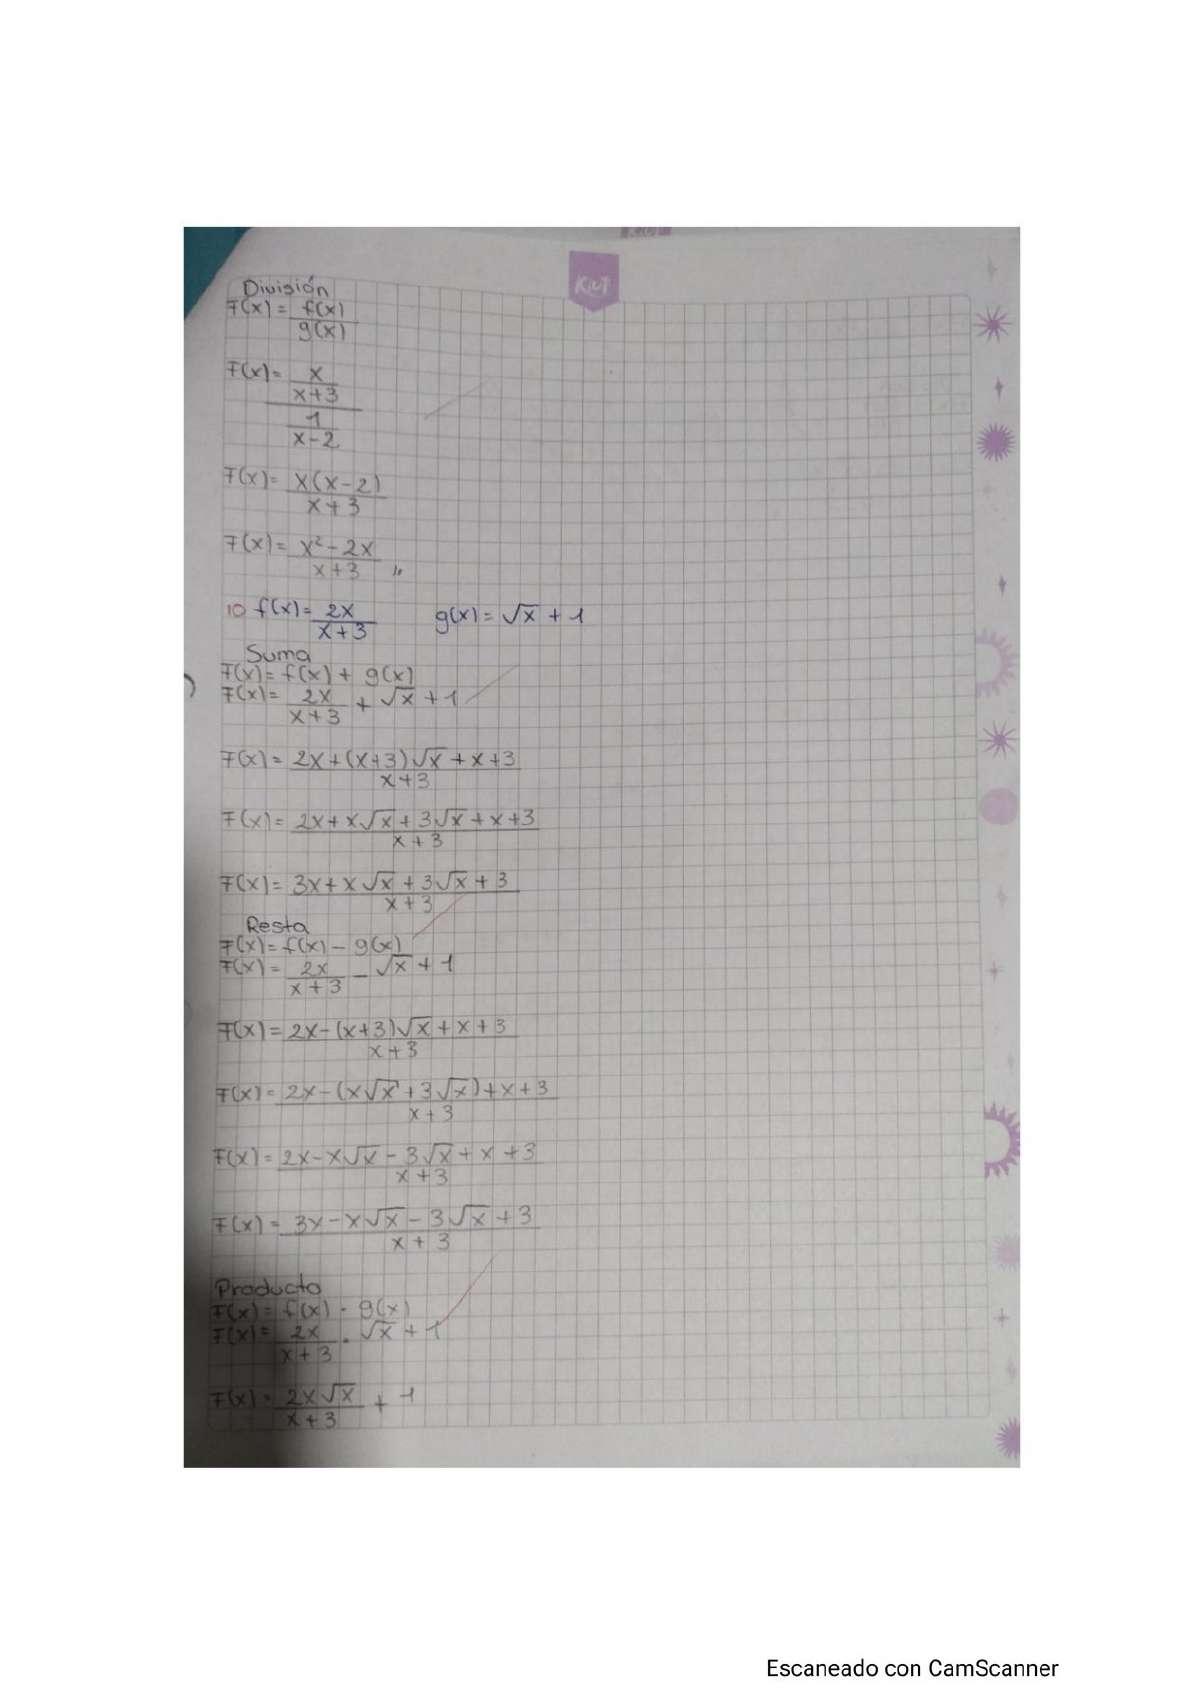 KIUT
KIUT
División
F(x) = f(x)
g(x)
F(x) = x
x+3
1
x-2
F(x) = x(x-2)
x+3
F(x) = x² - 2x
x+3 „
10 f(x) = 2x g(x) = √x + 1
x+3
Suma
F(x) = f(x) + g(x)
F(x) = 2x + √x + 1
x+3
F(x) = 2x+(x+3)√x + x+3
x+3
F(x) = 2x+x√x+3√x+x+3
x+3
F(x) = 3x+x√x+3√x+3
x+3
Resta
F(x) = f(x) - g(x)
F(x) = 2x - √x + 1
x+3
F(x) = 2x-(x+3)√x+x+3
x+3
F(x) = 2x-(x√x+3√x)+x+3
x+3
F(x) = 2x-x√x-3√x+x+3
x+3
F(x) = 3x-x√x-3√x+3
x+3
Producto
F(x) = f(x) · g(x)
F(x) = 2x · √x + 1
x+3
F(x) = 2x√x + 1
x+3
Escaneado con CamScanner